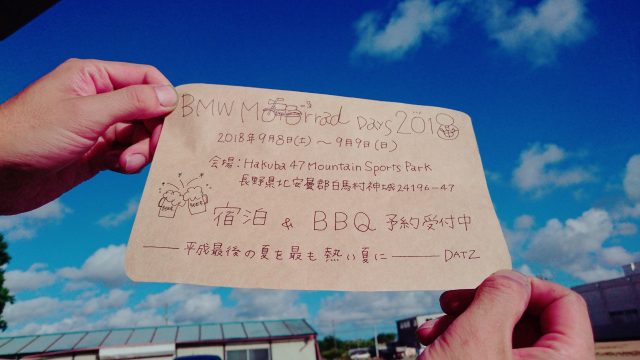 BMW Motorrad Days 2018
2018年9月8日(土) ～ 9月9日(日)
会場: Hakuba 47 Mountain Sports Park
長野県北安曇郡白馬村神城24196-47
宿泊 & BBQ 予約受付中
平成最後の夏を最も熱い夏に DATZ